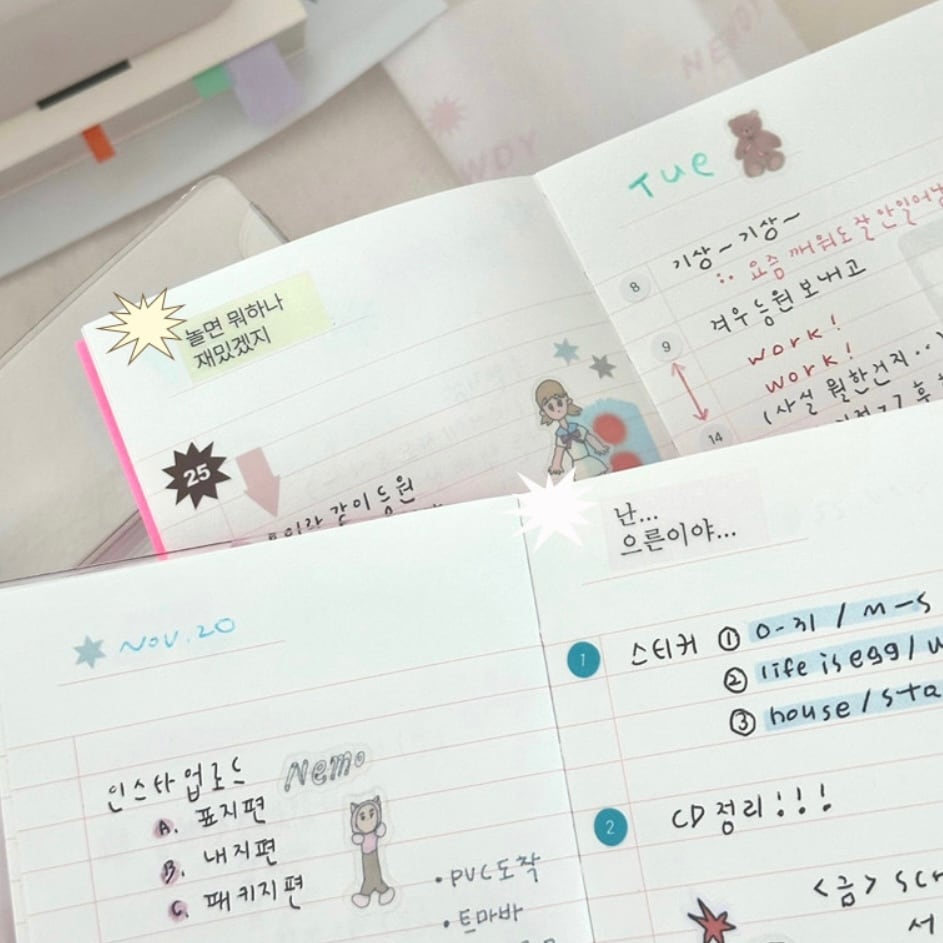 NE
WDY
놀면 뭐하나
재밌겠지
25
같이 등원
Tue
8
기상~ 기상~
∴ 요즘 깨워도 잘 안일어남
9
겨우 등원 보내고
work!
work!
(사실 뭘한건지..
14
후
NOV.20
인스타 업로드
Nemo
A. 표지편
B. 내지편
C. 패키지편
• PVC도착
• 토마바
난...
으른이야...
1
스티커 ① 0-31 / M-S
② life is egg /
③ house / sta
2
CD 정리!!!
<금> scr
서